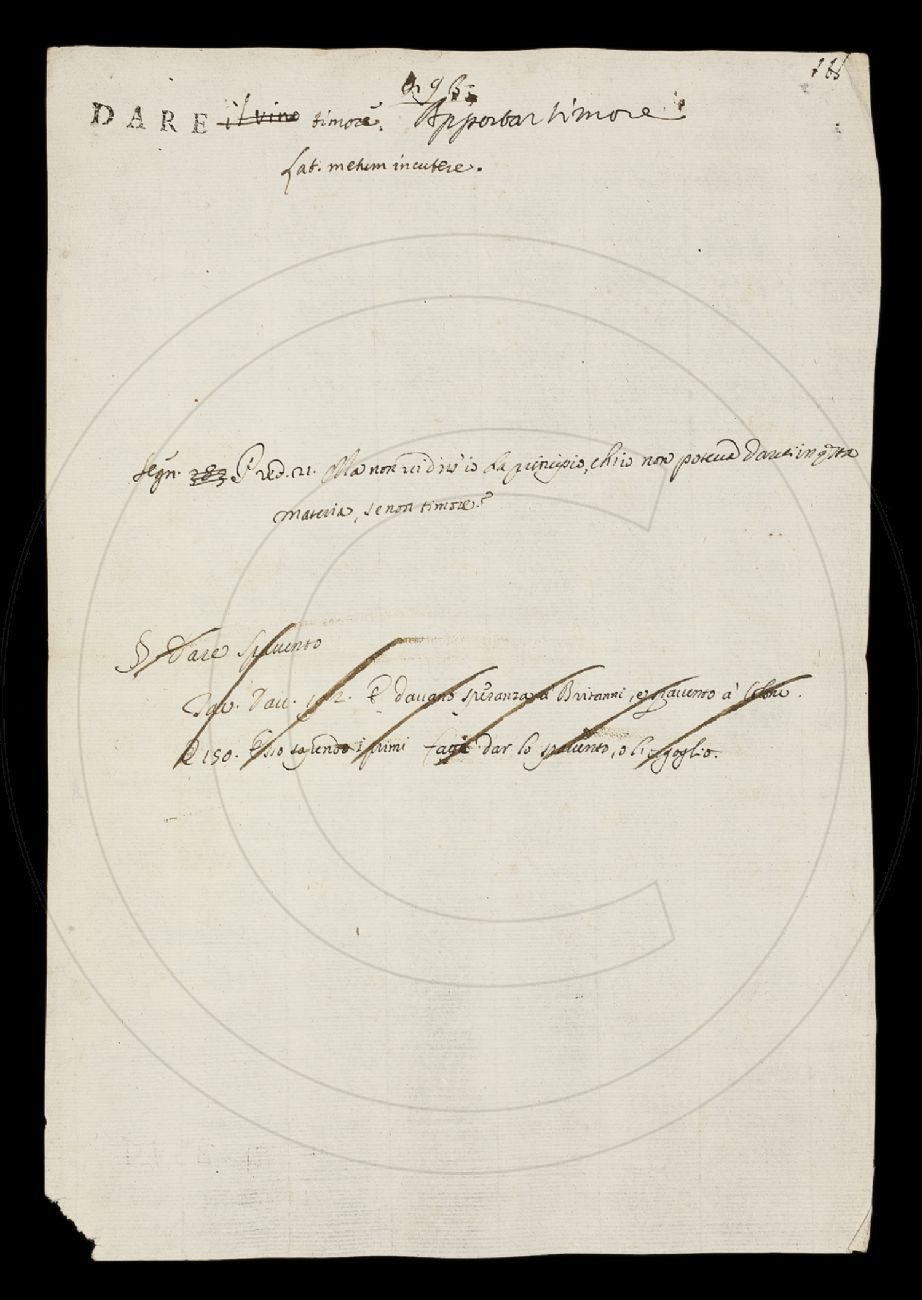 DARE il vino timore. Apportar timore.
Lat. metum incutere.
Segn. Pred. 21. Ma non vi diss' io da principio, ch' io non poteva darvi in qsta
materia, se non timore?
§ Dare spavento
Tac. Dav. davano speranza a' Britanni, e spavento a'
E 150. essendo i primi a dar lo spavento, o l' orgoglio.